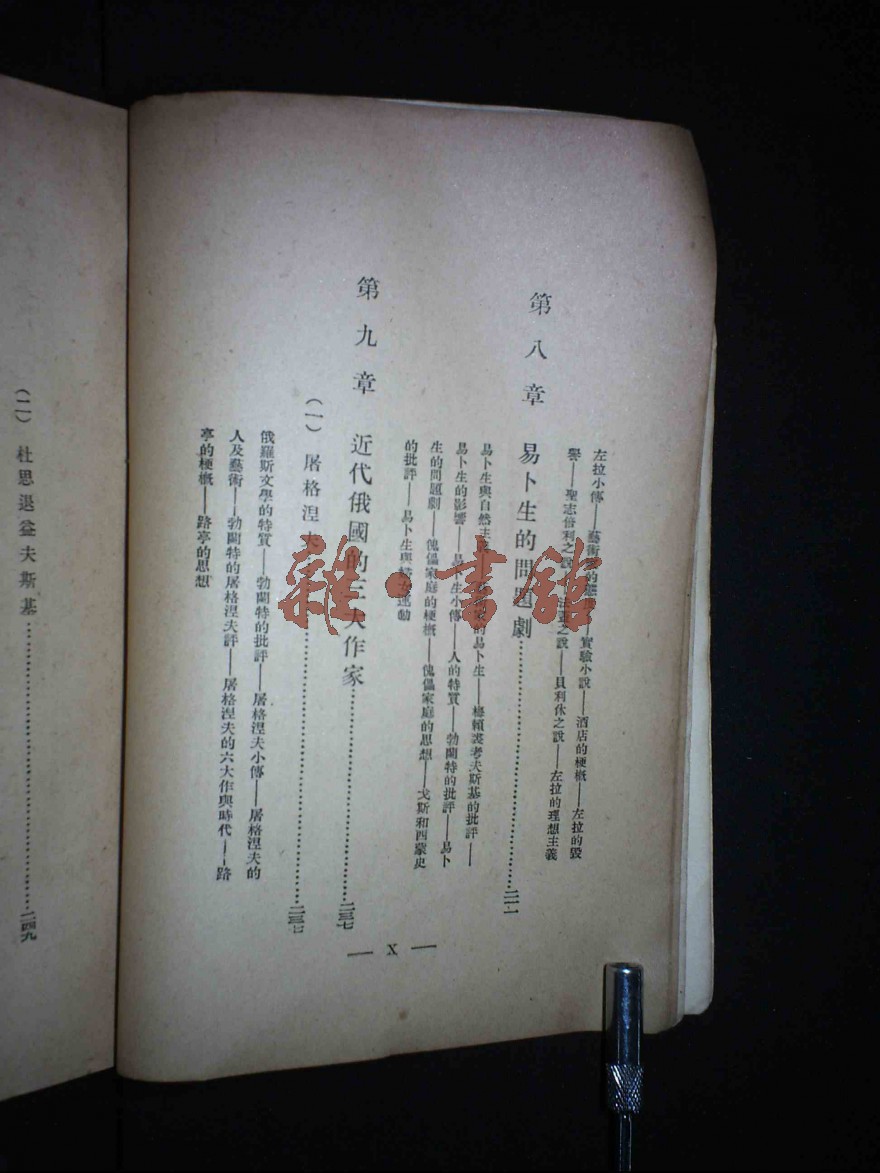 左拉小傳——藝術——實驗小說——酒店的梗概——左拉的毀
譽——聖志倍利之說——之說——貝利休之說——左拉的理想主義
第八章 易卜生的問題劇……二一一
易卜生與自然主——的易卜生——梅頼裘考夫斯基的批評——
易卜生的影響——易卜生小傳——人的特質——勃蘭特的批評——易卜
生的問題劇——傀儡家庭的梗概——傀儡家庭的思想——戈斯和西蒙史
的批評——易卜生與婦女運動
第九章 近代俄國的三大作家……二三七
(一) 屠格涅夫……二三七
俄羅斯文學的特質——勃蘭特的批評——屠格涅夫小傳——屠格涅夫的
人及藝術——勃蘭特的屠格涅夫評——屠格涅夫的六大作與時代——路
亭的梗概——路亭的思想
— X —
(二) 杜思退益夫斯基……二四九
雜·書館